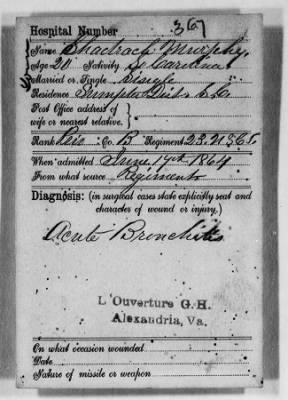 Hospital Number 367
Name Shadrach Murphy
Age 20 Nativity S. Carolina
Married or Single Single
Residence Sumpter Dist S.C.
Post Office address of
wife or nearest relative.
Rank Co. B Regiment 23. U
When admitted June 17th 1864
From what source Regiment
Diagnosis: (in surgical cases state explicitly seat and
character of wound or injury.)
Acute Bronchitis
L'Ouverture G. H.
Alexandria, Va.
On what occasion wounded
Date
Nature of missile or weapon